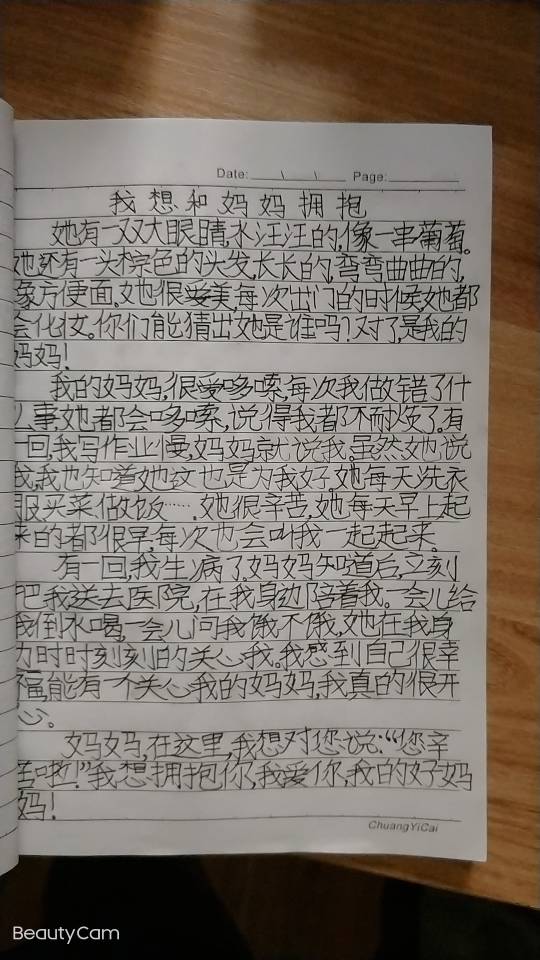 Date: \ \ Page:
我想和妈妈拥抱
她有一双大眼睛,水汪汪的,像一串葡萄。
她还有一头棕色的头发,长长的,弯弯曲曲的,
像方便面。她很爱美,每次出门的时候她都
会化妆。你们能猜出她是谁吗?对了,是我的
妈妈!
我的妈妈,很爱哆嗦,每次我做错了什
么事,她都会哆嗦,说得我都不耐烦了。有
一回,我写作业慢,妈妈就说我。虽然她说
我,我也知道她这也是为我好。她每天洗衣
服买菜做饭……她很辛苦,她每天早上起
来的都很早,每次也会叫我一起起来。
有一回,我生病了。妈妈知道后,立刻
把我送去医院,在我身边陪着我。一会儿给
我倒水喝,一会儿问我饿不饿,她在我身
边时时刻刻的关心我。我感到自己很幸
福,能有一个关心我的妈妈,我真的很开
心。
妈妈,在这里,我想对您说:“您辛
苦啦!”我想拥抱你,我爱你,我的好妈
妈!
ChuangYiCai
BeautyCam